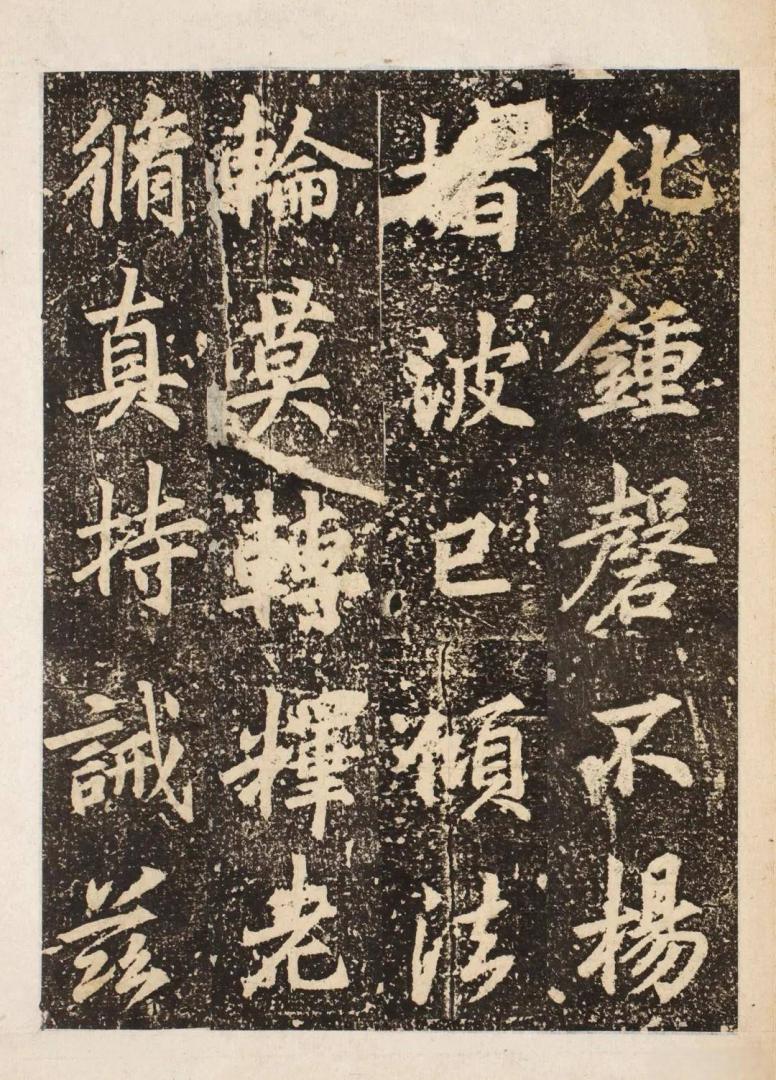 化鍾磬不揚
波已傾法
輪莫轉輝老
脩真持誡茲